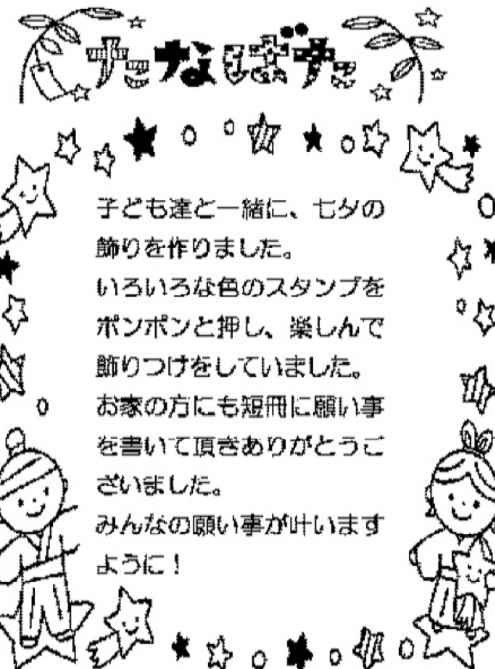 たなばた
子ども達と一緒に、七夕の
飾りを作りました。
いろいろな色のスタンプを
ポンポンと押し、楽しんで
飾りつけをしていました。
お家の方にも短冊に願い事
を書いて頂きありがとうご
ざいました。
みんなの願い事が叶います
ように！